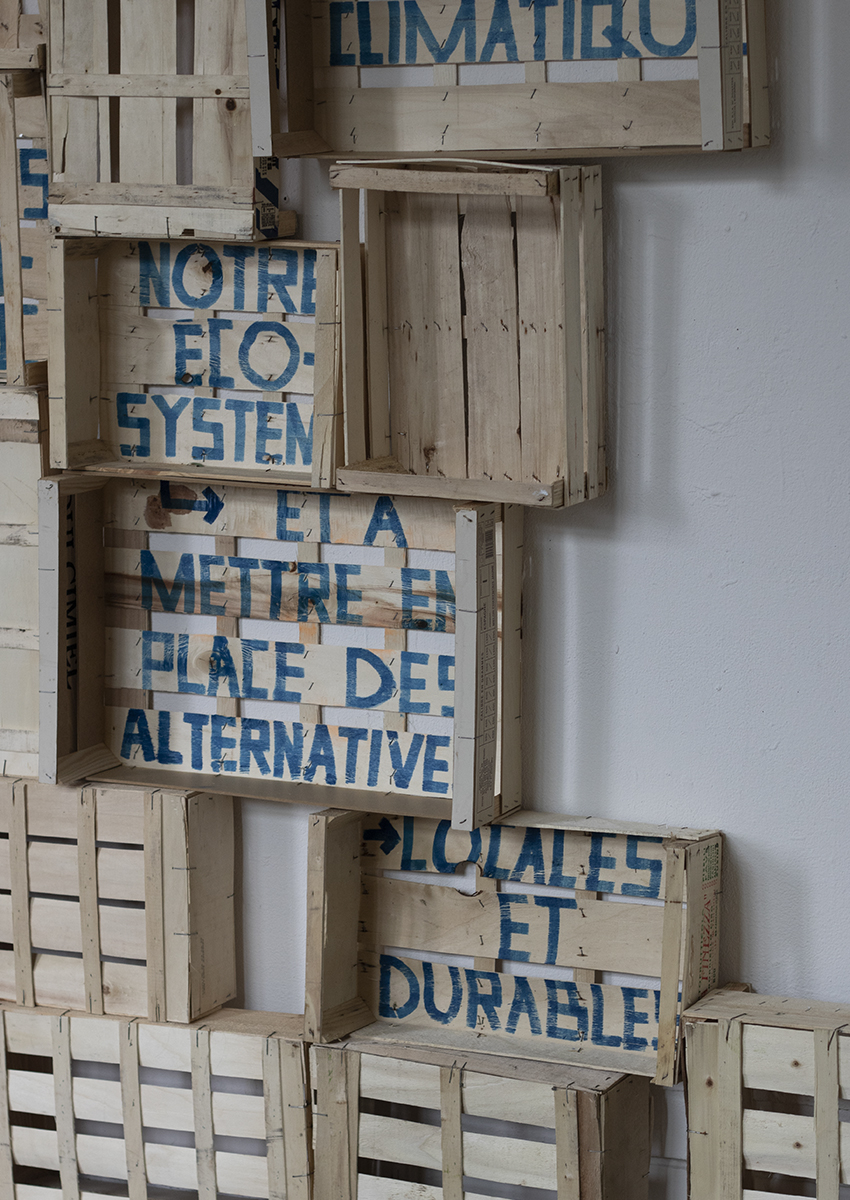 CLIMATIQU
NOTRE
ÉCO-
SYSTEM
→ ET A
METTRE EN
PLACE DES
ALTERNATIVE
→ LOCALES
ET
DURABLES